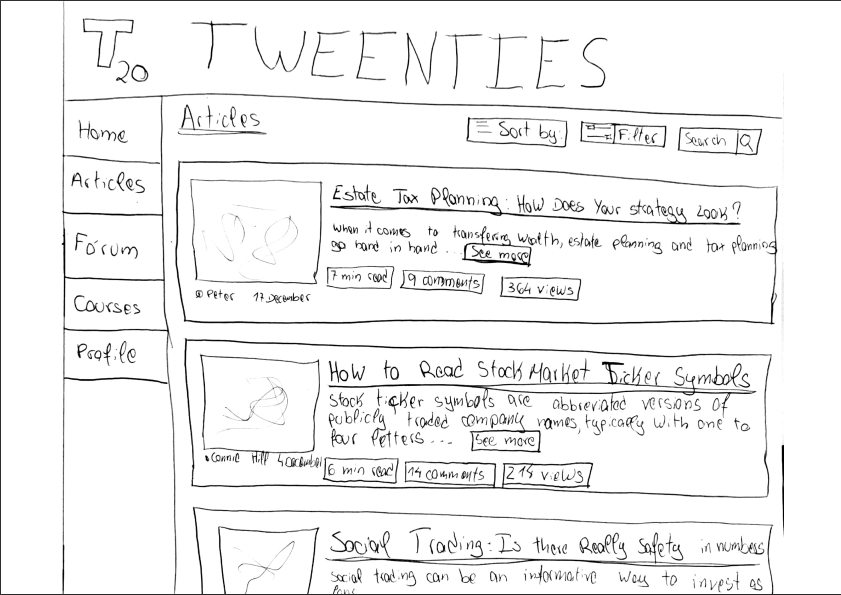 T20 TWEENTIES
Home
Articles
Forum
Courses
Profile
Articles
Sort by:
Filter
Search
Estate Tax Planning: How Does Your strategy Look?
When it comes to transfering wealth, estate planning and tax planning
go hand in hand ... See more
7 min read 9 comments 364 views
Peter 17 December
How to Read Stock Market Ticker Symbols
Stock ticker symbols are abbreviated versions of
publicly traded company names, typically with one to
four letters ... See more
Connie Hill 4 December
6 min read 14 comments 214 views
Social Trading: Is there Really Safety in numbers
Social trading can be an informative way to invest as